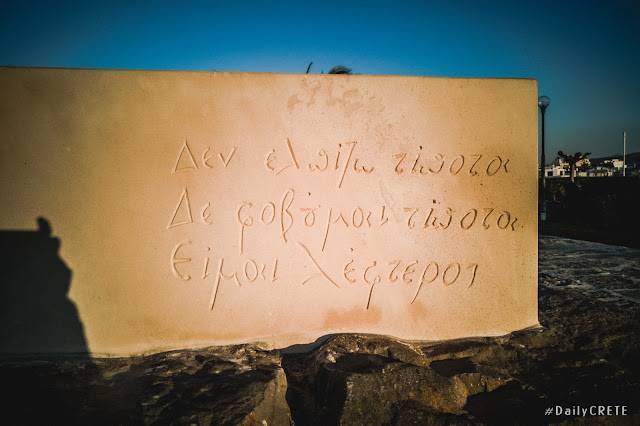 Δεν ελπίζω τίποτα
Δε φοβȣ́μαι τίποτα
Είμαι λέφτερος
#DailyCRETE